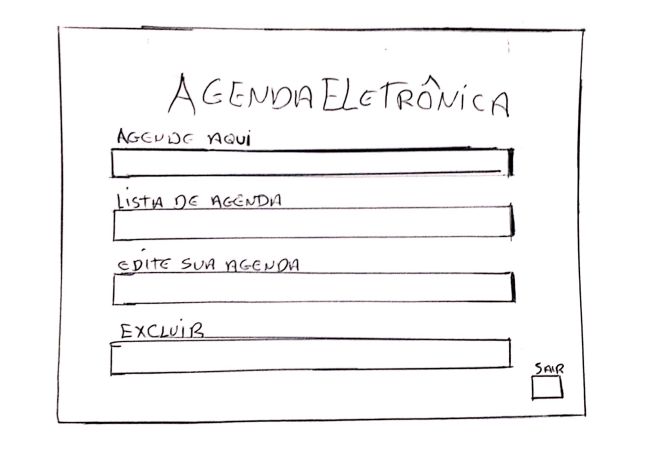 AGENDA ELETRÔNICA
AGENDE AQUI
LISTA DE AGENDA
EDITE SUA AGENDA
EXCLUIR
SAIR